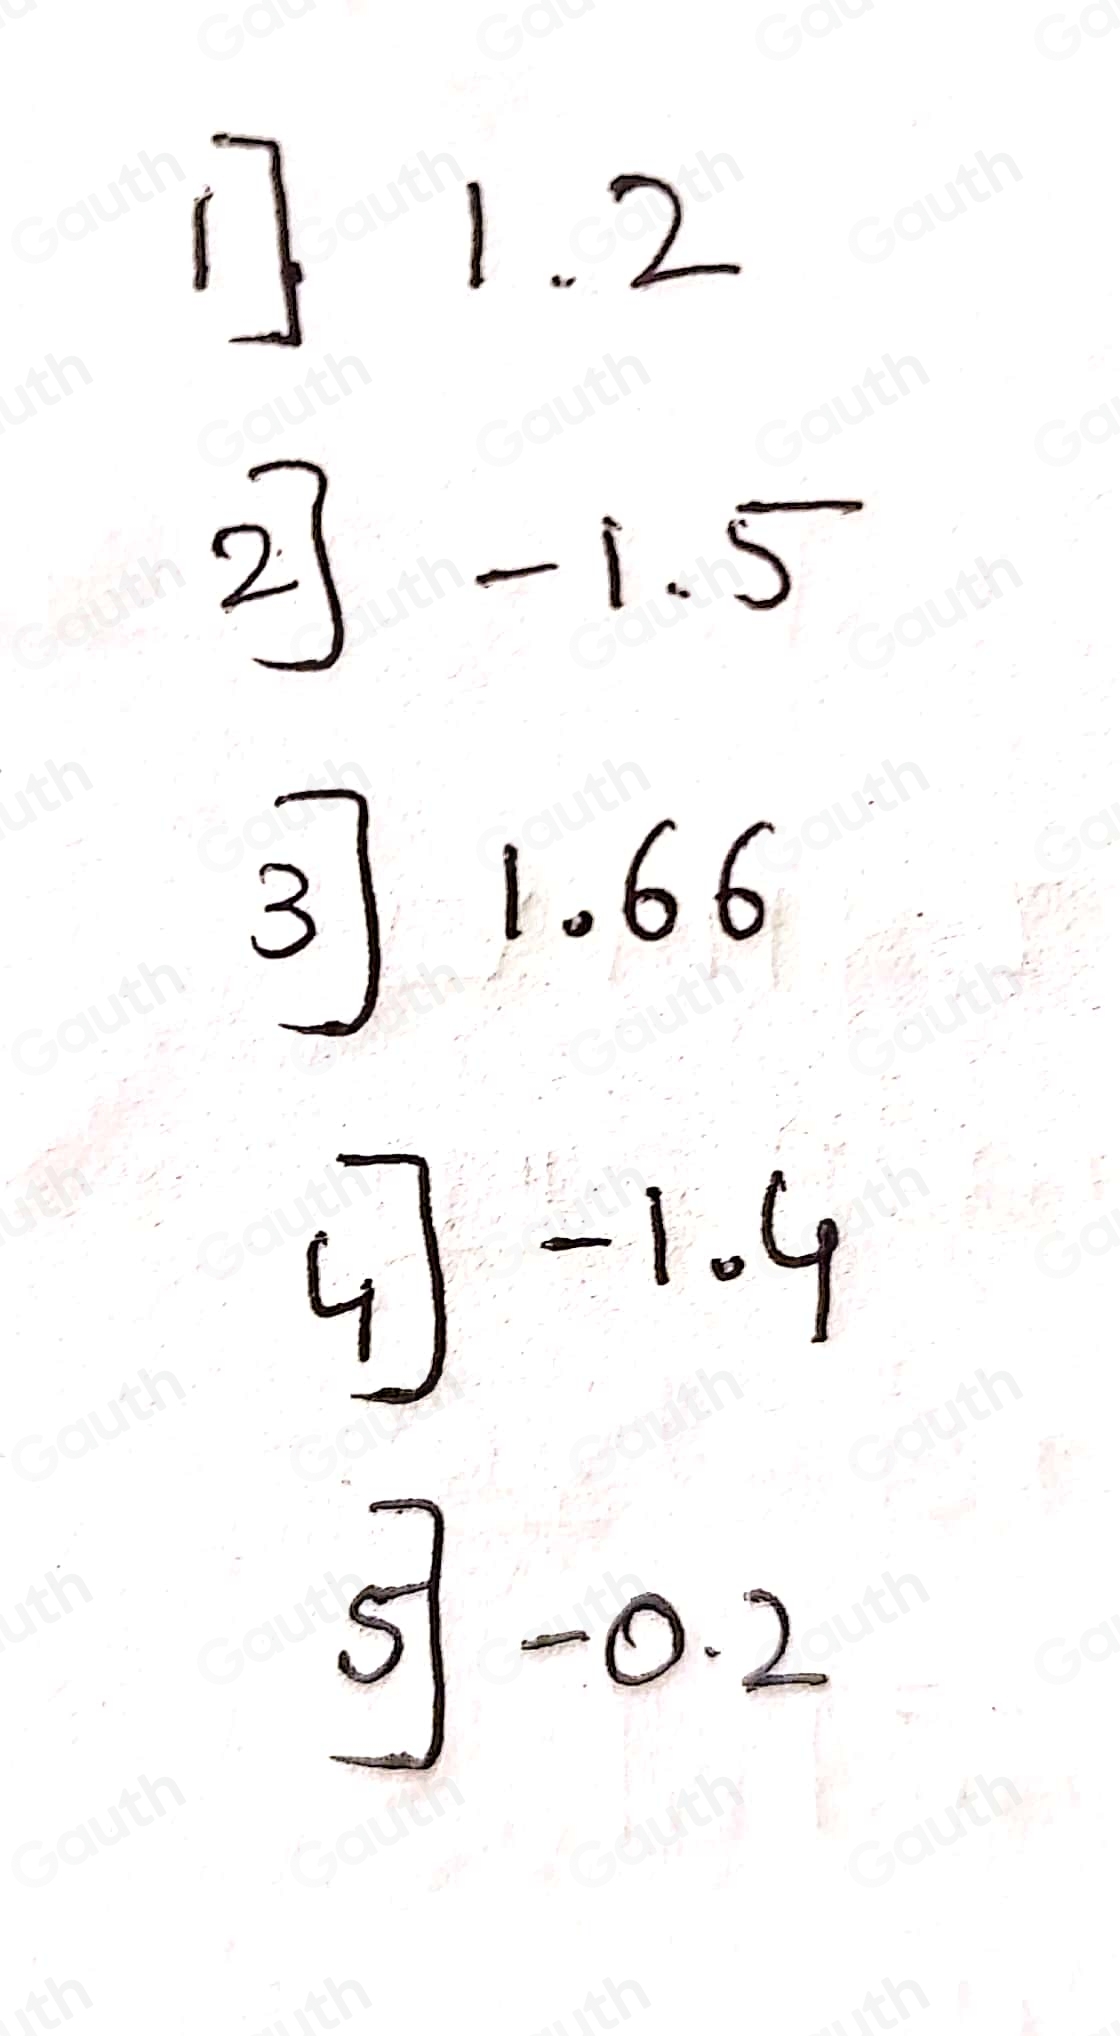 1] 1.2
2] -1.5
3] 1.66
4] -1.4
5] -0.2